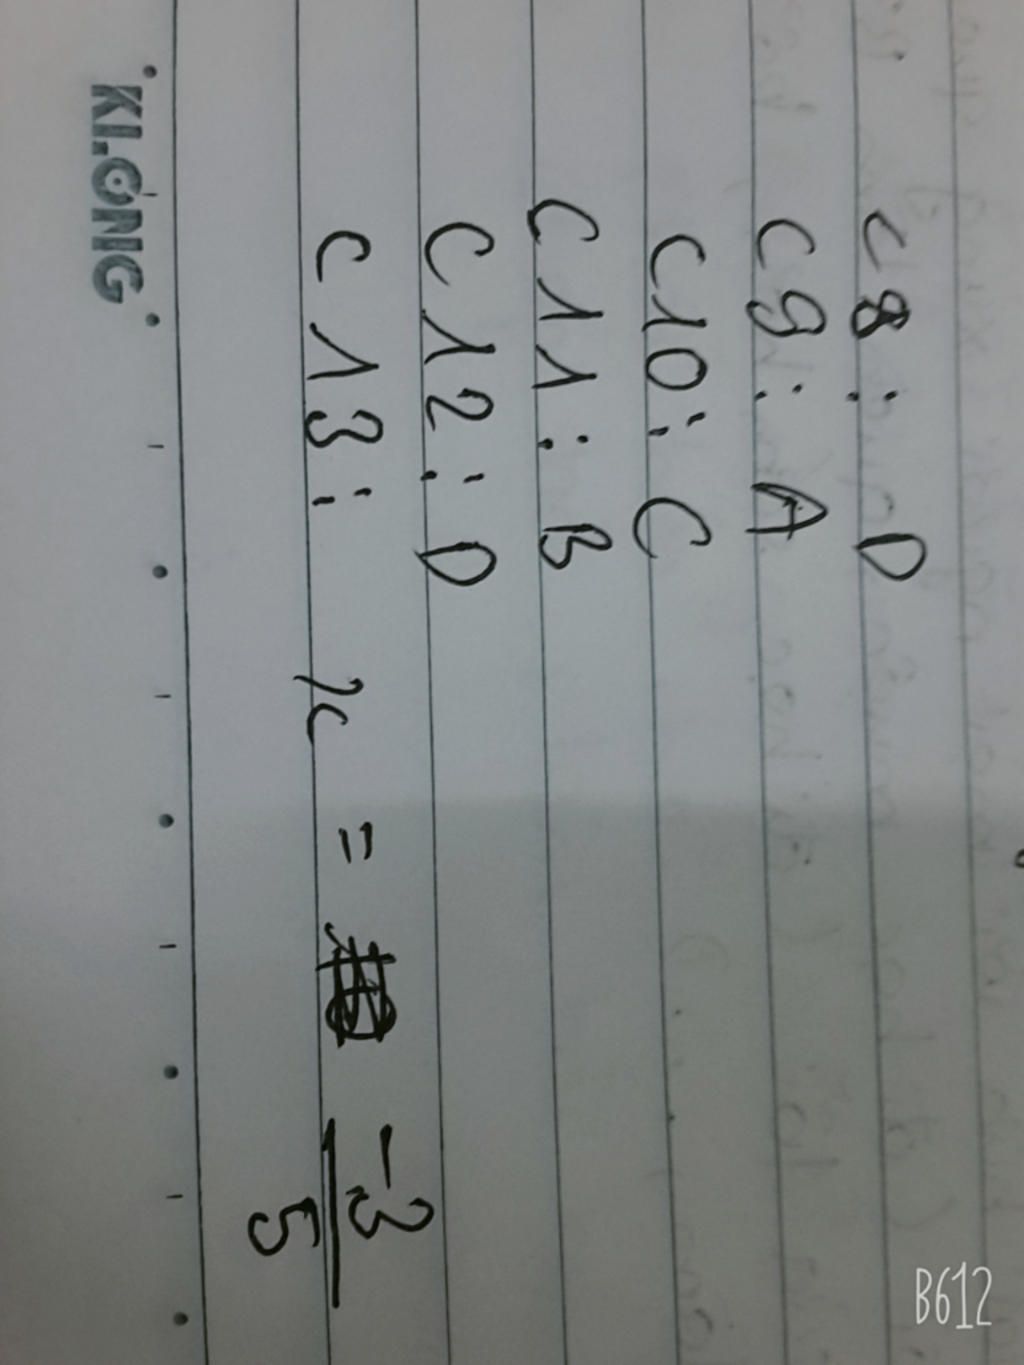 C8 : D
C9 : A
C10 : C
C11 : B
C12 : D
C13 : x = -3/5
KLONG
B612